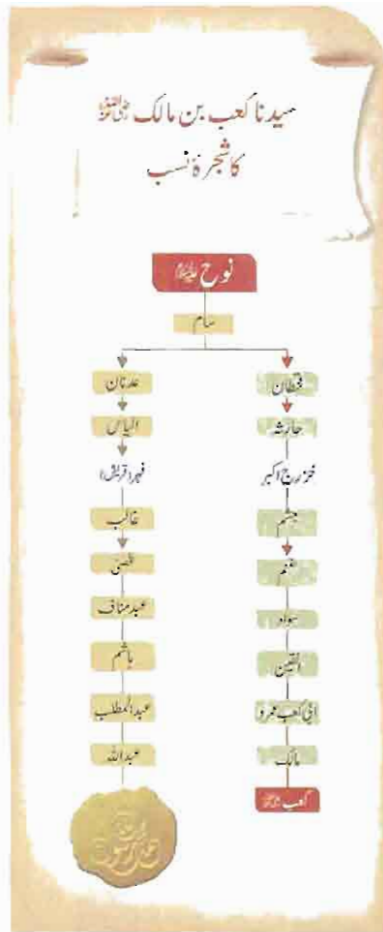 سیدنا کعب بن مالک رضی اللہ عنہ
کا شجرۂ نسب
نوح علیہ السلام
سام
قحطان
حارثہ
خزرج اکبر
جشم
غنم
سواد
القین
ابی کعب عمرو
مالک
کعب رضی اللہ عنہ
عدنان
الیاس
فہر (قریش)
غالب
قصی
عبد مناف
ہاشم
عبدالمطلب
عبداللہ
محمد رسول اللہ